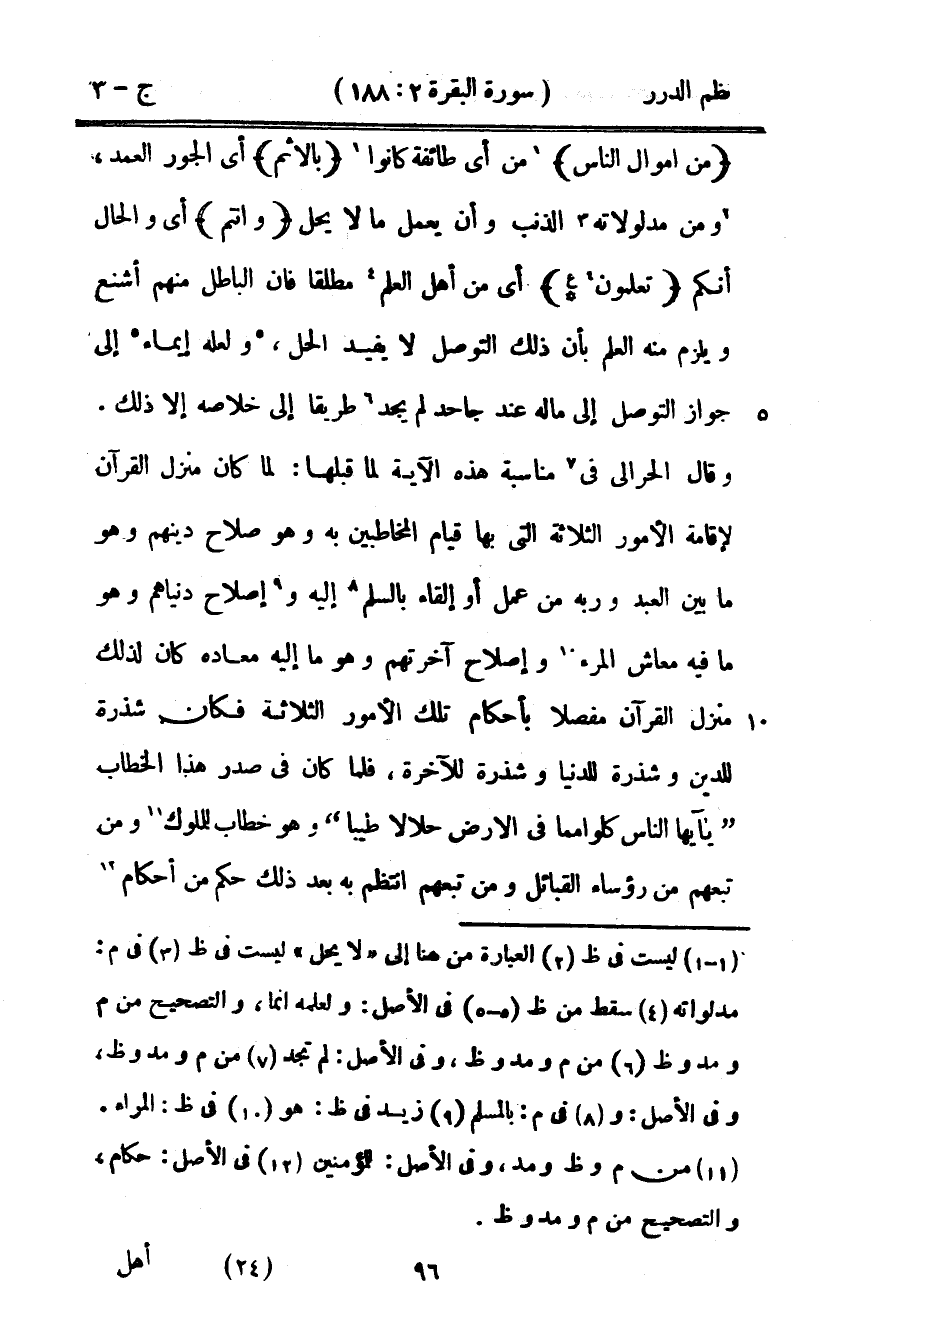 نظم الدرر ( سورة البقرة ٢ : ١٨٨ ) ج - ٣
﴿من اموال الناس﴾ ١من أى طائفة كانوا١ ﴿بالاثم﴾ أى الجور العمد ،
٢و من مدلولاته٣ الذنب و أن يعمل ما لا يحل ﴿و انتم﴾ أى و الحال
أنكم ﴿تعلمون ع﴾ أى من أهل العلم٤ مطلقا فان الباطل منهم أشنع
و يلزم منه العلم بأن ذلك التوصل لا يفيد الحل ، ٥و لعله إيماء٥ إلى
٥ جواز التوصل إلى ماله عند جاحد لم يجد٦ طريقا إلى خلاصه إلا ذلك .
و قال الحرالى فى٧ مناسبة هذه الآية لما قبلها : لما كان منزل القرآن
لإقامة الأمور الثلاثة التى بها قيام المخاطبين به و هو صلاح دينهم و هو
ما بين العبد و ربه من عمل أو إلقاء بالسلم٨ إليه و٩ إصلاح دنياهم و هو
ما فيه معاش المرء١٠ و إصلاح آخرتهم و هو ما إليه معاده كان لذلك
١٠ منزل القرآن مفصلا بأحكام تلك الأمور الثلاثة فكان شذرة
للدين و شذرة للدنيا و شذرة للآخرة ، فلما كان فى صدر هذا الخطاب
” يٰۤايها الناس كلوا مما فى الارض حلالا طيبا “ و هو خطاب للملوك١١ و من
تبعهم من رؤساء القبائل و من تبعهم انتظم به بعد ذلك حكم من أحكام١٢
(١-١) ليست فى ظ (٢) العبارة من هنا إلى « لا يحل » ليست فى ظ (٣) فى م :
مدلواته (٤) سقط من ظ (٥-٥) فى الأصل : و لعلمه انما ، و التصحيح من م
و مد و ظ (٦) من م و مد و ظ ، و فى الأصل : لم تجد (٧) من م و مد و ظ ،
و فى الأصل : و (٨) فى م : بالمسلم (٩) زيد فى ظ : هو (١٠) فى ظ : المراء .
(١١) من م و ظ و مد ، و فى الأصل : للمؤمنين (١٢) فى الأصل : حكام ،
و التصحيح من م و مد و ظ .
٩٦ (٢٤) أهل